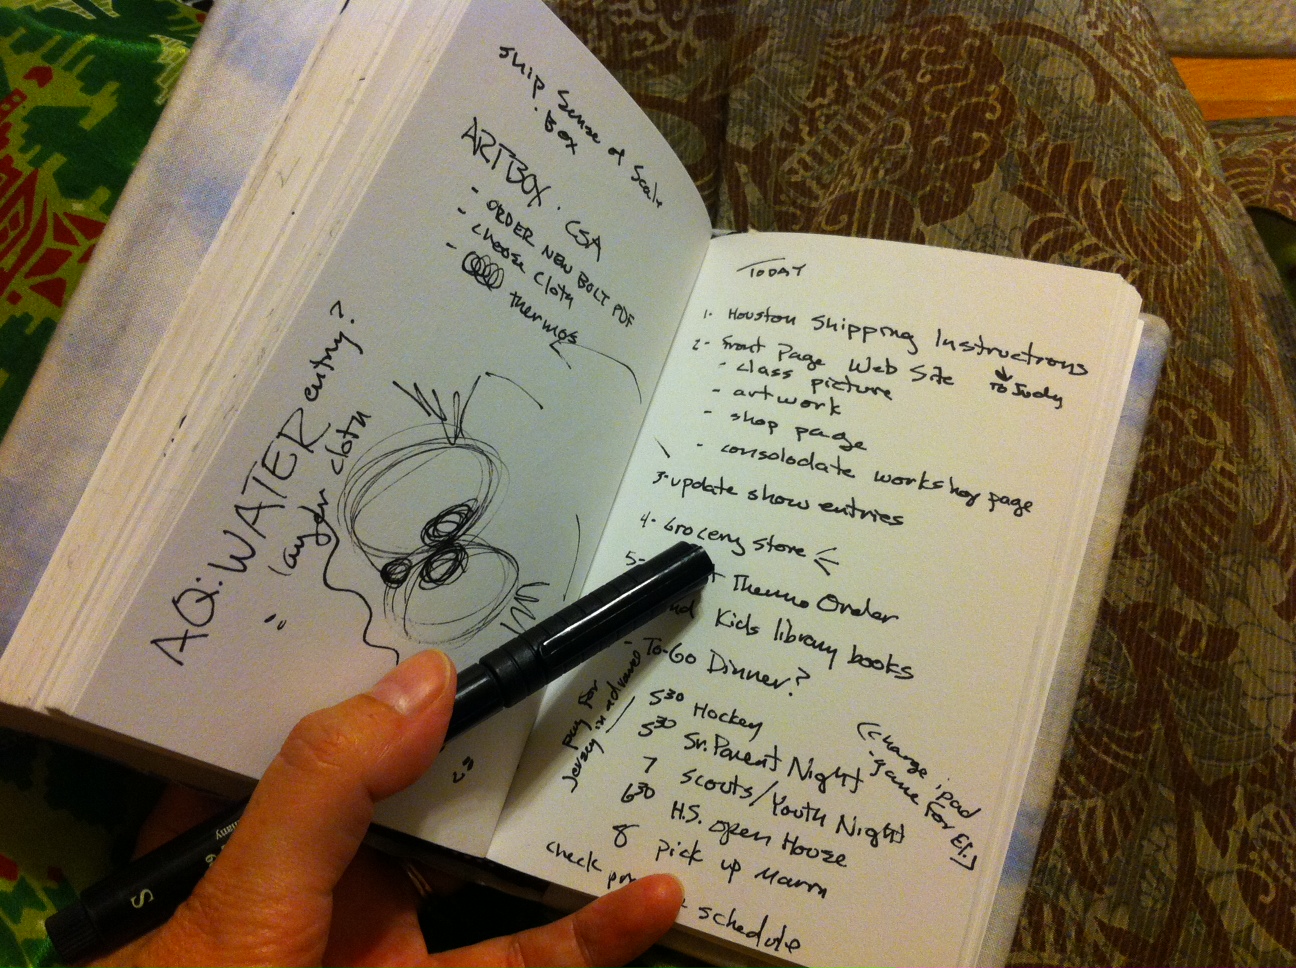 Ship Sense of Scale
. Box
ARTBOX . CSA
- ORDER NEW BOLT PDF
- choose cloth
- thermos
AQ: WATER entry?
layer cloth
TODAY
1. Houston Shipping Instructions
to Judy
2- Front Page Web Site
- class picture
- artwork
- shop page
- consolodate workshop page
3. update show entries
4- Grocery store
5- Thermo Order
Kids library books
- To-Go Dinner?
pay for
Jersey in advance
5 30 Hockey
5 30 Sr. Parent Night
7 Scouts/Youth Night
6 30 H.S. Open House
8 pick up
(change ipad
- game for El.)
check
schedule
many
S